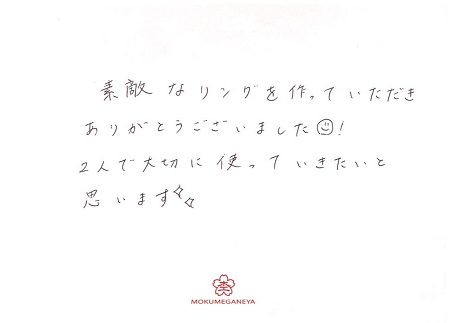 素敵なリングを作っていただき
ありがとうございました☺!
2人で大切に使っていきたいと
思います✧✧
杢
MOKUMEGANEYA